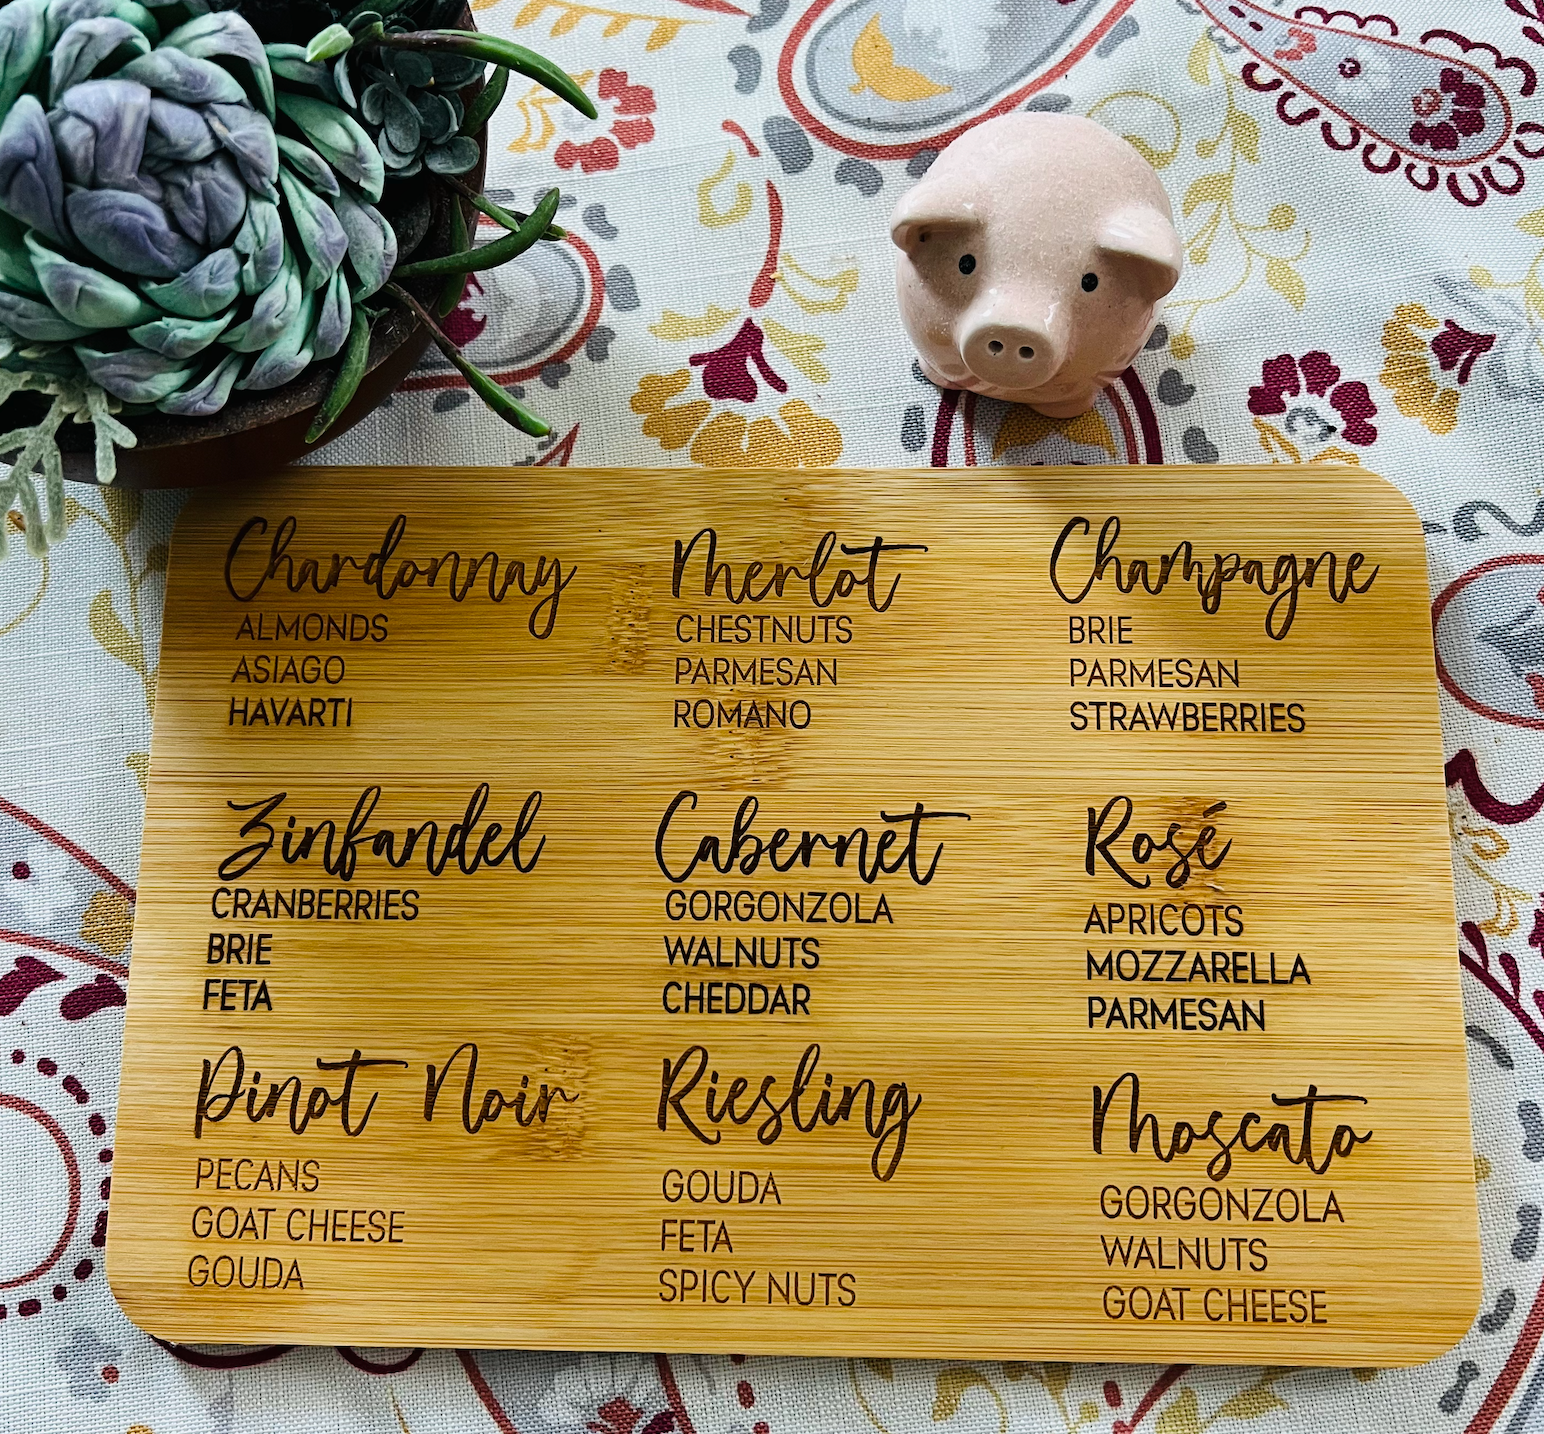 Chardonnay
ALMONDS
ASIAGO
HAVARTI
Merlot
CHESTNUTS
PARMESAN
ROMANO
Champagne
BRIE
PARMESAN
STRAWBERRIES
Zinfandel
CRANBERRIES
BRIE
FETA
Cabernet
GORGONZOLA
WALNUTS
CHEDDAR
Rosé
APRICOTS
MOZZARELLA
PARMESAN
Pinot Noir
PECANS
GOAT CHEESE
GOUDA
Riesling
GOUDA
FETA
SPICY NUTS
Moscato
GORGONZOLA
WALNUTS
GOAT CHEESE